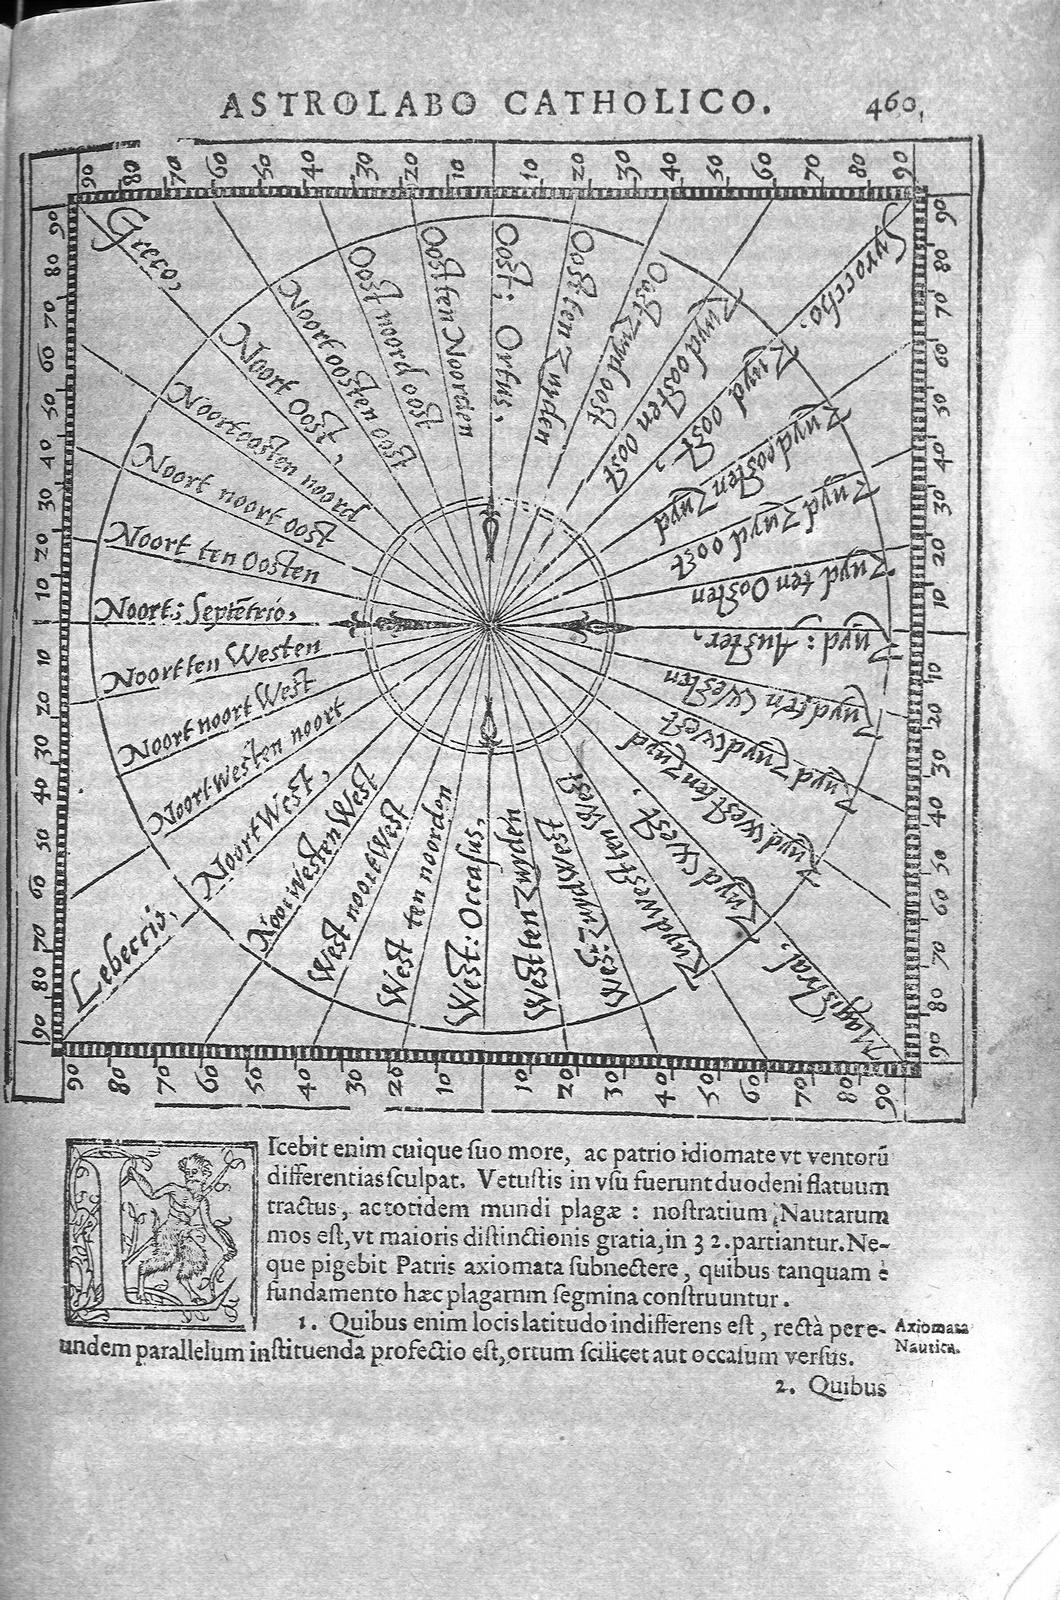 ASTROLABO CATHOLICO.
460,
90 80 70 60 50 40 30 20 10 10 20 30 40 50 60 70 80 90
90 80 70 60 50 40 30 20 10 10 20 30 40 50 60 70 80 90
Greco,
Noort Oost,
Noortoosten oost
Oost noord oost
Oost ten Noorden
Oost: Ortus,
Oost ten Zuyden
Oost zuyd oost
Zuyd oosten oost
Zuyd oost,
Syroccho.
Zuydoosten Zuyd
Zuyd Zuyd oost
Zuyd ten Oosten
Zuyd: Auster,
Zuyd ten Westen
Zuyd Zuyd West
Zuyd West ten Zuyd
Zuyd West.
Magistral.
Zuydwest ten West
West Zuyd West
West ten Zuyden
West: Occasus,
West ten noorden
West noort West
Noort Westen West
Noort West,
Lebeccio,
Noort Westen noort
Noort noort West
Noort ten Westen
Noort: Septētrio,
Noort ten Oosten
Noort noort oost
Noortoosten noord
90 80 70 60 50 40 30 20 10 10 20 30 40 50 60 70 80 90
90 80 70 60 50 40 30 20 10 10 20 30 40 50 60 70 80 90
LIcebit enim cuique ſuo more, ac patrio idiomate vt ventorū
differentias ſculpat. Vetuſtis in vſu fuerunt duodeni flatuum
tractus, ac totidem mundi plagæ: noſtratium Nautarum
mos eſt, vt maioris diſtinctionis gratia, in 32. partiantur. Ne-
que pigebit Patris axiomata ſubnectere, quibus tanquam è
fundamento hæc plagarum ſegmina conſtruuntur.
1. Quibus enim locis latitudo indifferens eſt, rectà pere- Axiomata
undem parallelum inſtituenda profectio eſt, ortum ſcilicet aut occaſum verſus. Nautica.
2. Quibus